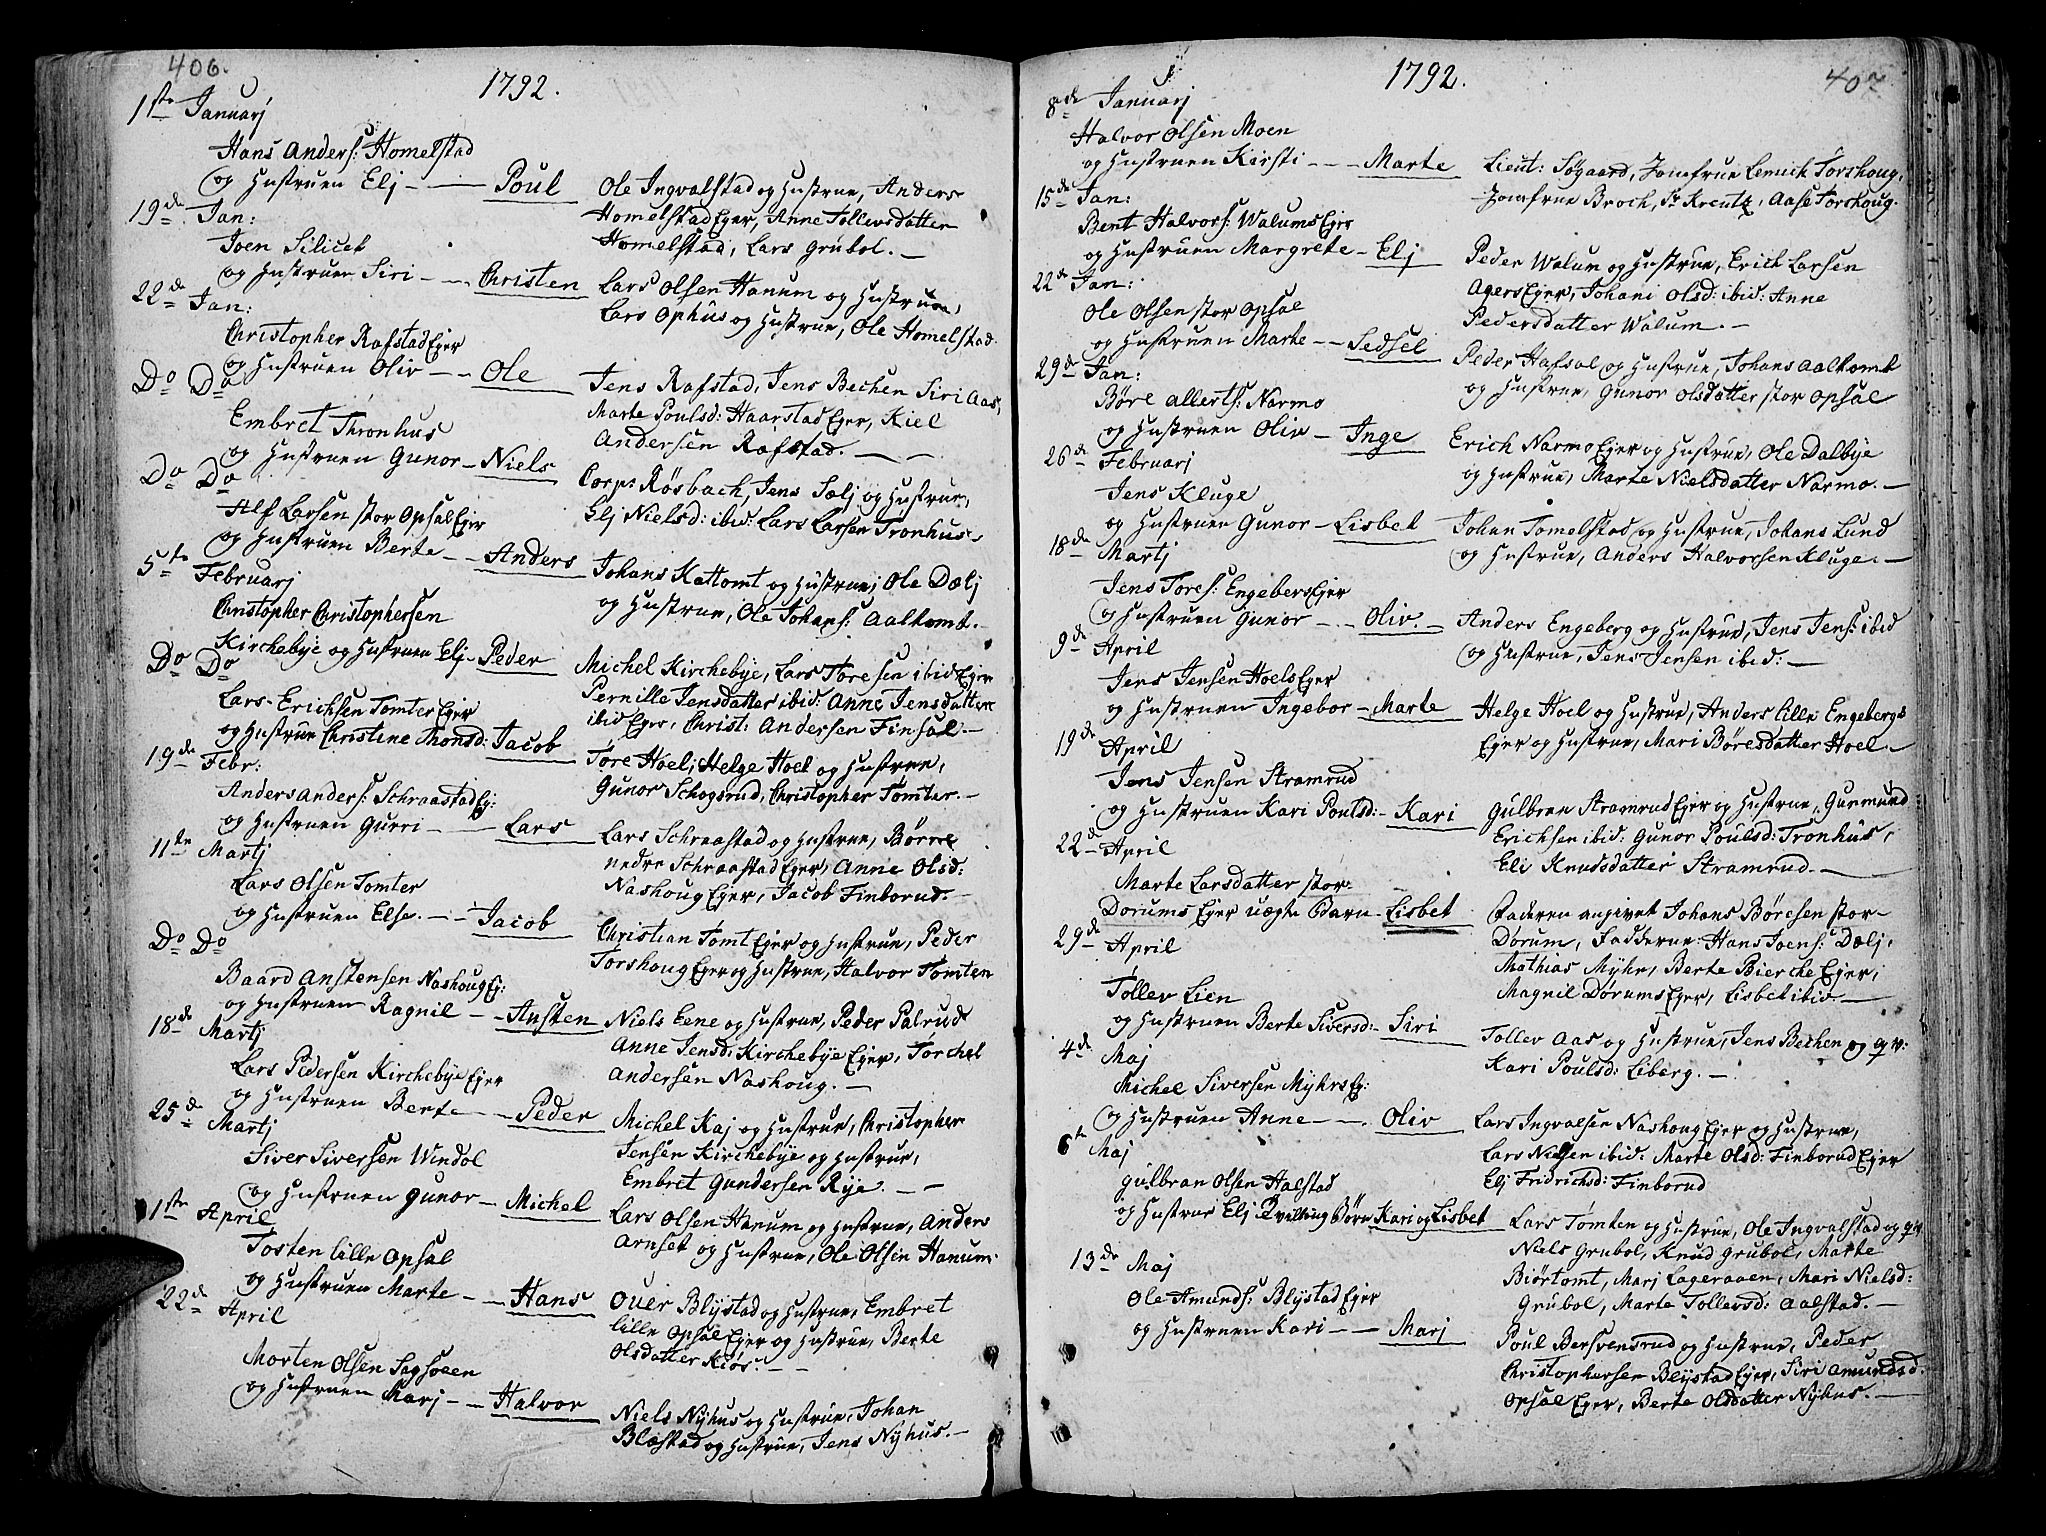 406.
1792.
1ste Januarj
Hans Anders: Homelstad
og Hustruen Elj — Poul
Ole Ingvalstad og Hustrue, Anders
HomelstadEyer, Anne Tollevsdatter
Homelstad, Lars Grubol. —
19de Jan:
Joen Silicet
og Hustruen Siri — Christen
Lars Olsen Hanum og Hustrue,
Lars Ophus og Hustrue, Ole Homelstad.
22de Jan:
Christopher RafstadEyer
og Hustruen Oliv — Ole
Jens Rafstad, Jens Bechen Siri Aas,
Marte Poulsd: HaarstadEyer, Kiel
Andersen Rafstad. —
Do Do
Embret Thronhus
og Hustruen Gunor — Niels
Corp: Røsbach, Jens Sælj og Hustrue,
Elj Nielsd: ibid: Lars Larsen Tronhus.
Do Do
Alf Larsen stor OpsalEyer
og Hustruen Berte — Anders
Johans Kattomt og Hustrue, Ole Dælj
og Hustrue, Ole Johans: Aalkomt. —
5te Februarj
Christopher Christophersen
Kirchebye og Hustruen Elj — Peder
Michel Kirchebye, Lars Toresen ibid Eyer
Pernille Jensdatter ibid: Anne Jensdatter
ibid Eyer, Christ: Andersen Finsal. —
Do Do
Lars Erichsen TomterEyer
og Hustrue Christine Thonsd: Jacob
Tore Hoel, Helge Hoel og Hustrue,
Gunor Schogsrud, Christopher Tomter. —
19de Febr:
Anders Anders: SchraastadEy:
og Hustruen Gurri — Lars
Lars Schraastad og Hustrue, Børre
nedre SchraastadEyer, Anne Olsd:
NashougEyer, Jacob Finborud. —
11te Martj
Lars Olsen Tomter
og Hustruen Else. — Jacob
Christian TomtEyer og Hustrue, Peder
TorshougEyer og Hustrue, Halvor Tomten
Do Do
Baard Anstensen NashougEy:
og Hustruen Ragnil — Ansten
Niels Eene og Hustrue, Peder Palrud
Anne Jensd: KirchebyeEyer, Torchel
Andersen Nashoug. —
18de Martj
Lars Pedersen KirchebyeEyer
og Hustruen Berte — Peder
Michel Kaj og Hustrue, Christopher
Jensen Kirchebye og Hustrue,
Embret Gundersen Rye. —
25de Martj
Siver Siversen Windol
og Hustruen Gunor — Michel
Lars Olsen Hanum og Hustrue, Anders
Arnset og Hustrue, Ole Olsen Hanum.
1ste April
Tosten lille Opsal
og Hustruen Marte — Hans
Ouer Blystad og Hustrue, Embret
lille OpsalEyer og Hustrue, Berte
Olsdatter Kiøs. —
22de April
Morten Olsen Sagsveen
og Hustruen Marj — Halvor
Niels Nyhus og Hustrue, Johan
Blæstad og Hustrue, Jens Nyhus. —
1792.
407
8de Januarj
Halvor Olsen Moen
og Hustruen Kirsti — Marte
Lieut: Søgaard, Jomfrue Lemick Torshoug,
Jomfrue Broch, Sr Kreutz, Aase Torshoug.
15de Jan:
Bent Halvors: WalumsEyer
og Hustruen Margrete — Elj
Peder Walum og Hustrue, Erich Larsen
AgersEyer, Johani Olsd: ibid: Anne
Pedersdatter Walum. —
22de Jan:
Ole Olsen stor Opsal
og Hustruen Marte — Sedsel
Peder Hafsal og Hustrue, Johans Aalkomt
og Hustrue, Gunor Olsdatter stor Opsal
29de Jan:
Børe Allerts: Narmo
og Hustruen Oliv — Inge
Erich NarmoEyer og Hustrue, Ole Dalbye
og Hustrue, Marte Nielsdatter Narmo. —
26de Februarj
Jens Kluge
og Hustruen Gunor — Lisbet
Johan Tomelstad og Hustrue, Johans Lund
og Hustrue, Anders Halvorsen Kluge. —
18de Martj
Jens Tores: EngebersEyer
og Hustruen Gunor — Oliv.
Anders Engeberg og Hustrue, Jens Jens: ibid
og Hustrue, Jens Jensen ibid: —
9de April
Jens Jensen HoelsEyer
og Hustruen Ingebor — Marte
Helge Hoel og Hustrue, Anders lille Engebergs
Eyer og Hustrue, Mari Børesdatter Hoel. —
19de April
Jens Jensen Stramrud
og Hustruen Kari Poulsd: — Kari
Gulbran StramrudEyer og Hustrue, Gunmund
Erichsen ibid: Gunor Poulsd: Tronhus,
Eli Knudsdatter Stramrud. —
22de April
Marte Larsdatter stor-
DorumsEyer uægte Barn — Lisbet
Faderen angivet Johans Børesen stor-
Dørum, Fadderne: Hans Joens: Dælj,
Mathias Myhr, Berte BiercheEyer,
Magnil DørumsEyer, Lisbet ibid. —
29de April
Tollev Lien
og Hustruen Berte Siversd: — Siri
Tollev Aas og Hustrue, Jens Bechen og qv:
Kari Poulsd: Liberg. —
4de Maj
Michel Siversen MyhrsEy:
og Hustruen Anne — Oliv
Lars Ingvalsen NashougEyer og Hustrue,
Lars Nielsen ibid: Marte Olsd: FinborudEyer
Elj Fridrichsd: Finborud
6te Maj
Gulbran Olsen Halstad
og Hustrue Elj Tvilling Børn Kari og Lisbet
Lars Tomten og Hustrue, Ole Ingvalstad og qv.
Niels Grubol, Knud Grubol, Marte
Biørtomt, Marj Lageraaen, Mari Nielsd:
Grubol, Marte Tollevsd: Aalstad. —
13de Maj
Ole Amunds: BlystadEyer
og Hustruen Kari — Marj
Poul Bersvensrud og Hustrue, Peder
Christophersen BlystadEyer, Siri Amundsd.
OpsalEyer, Berte Olsdatter Nyhus. —